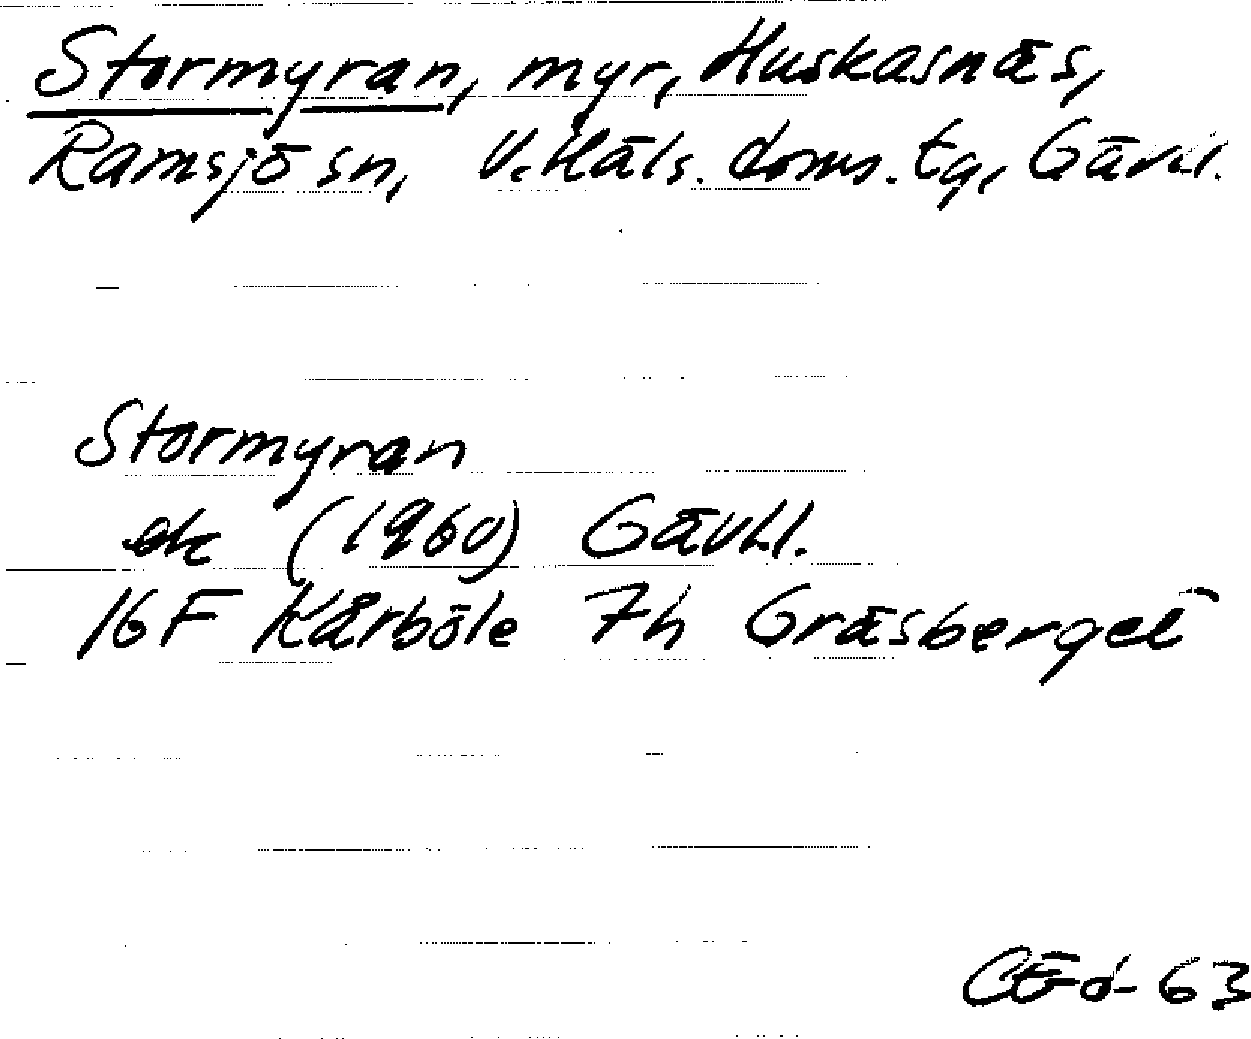 Stormyran, myr, Huskasnäs,
Ramsjö sn, V. Häls. doms. tg, Gävl.
Stormyran
ek (1960) Gävl.
16F Kårböle 7h Gräsberget
63